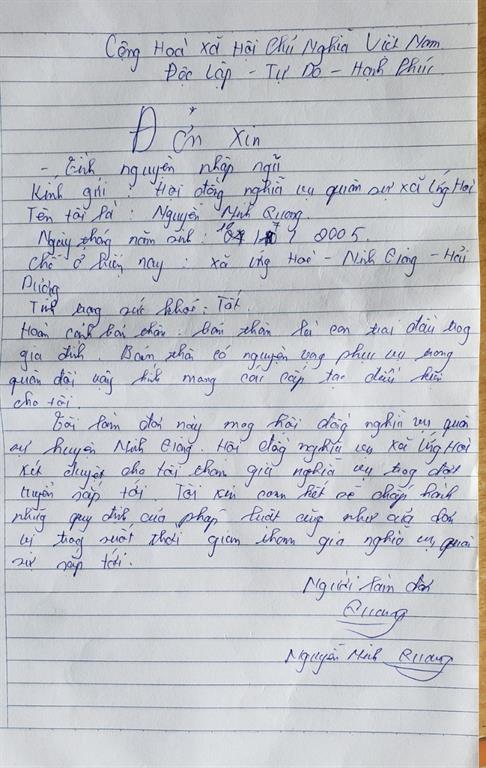 Cộng Hoà Xã Hội Chủ Nghĩa Việt Nam
Độc Lập - Tự Do - Hạnh Phúc
Đơn Xin
- Tình nguyện nhập ngũ
Kính gửi : Hội đồng nghĩa vụ quân sự xã Ứng Hoè
Tên tôi là : Nguyễn Minh Quang.
Ngày tháng năm sinh : 2005
Chỗ ở hiện nay : xã Ứng Hoè - Ninh Giang - Hải
Dương
Tình trạng sức khoẻ : Tốt.
Hoàn cảnh bản thân : bản thân là con trai đầu trog
gia đình. Bản thân có nguyện vọg phục vụ trong
quân đội vậy kính mong các cấp tạo điều kiện
cho tôi.
Tôi làm đơn này mog hội đồng nghĩa vụ quân
sự huyện Ninh Giang. Hội đồng nghĩa vụ xã Ứng Hoè
xét duyệt cho tôi tham gia nghĩa vụ trog đợt
tuyển sắp tới. Tôi xin cam kết sẽ chấp hành
nhữg quy định của pháp luật cũng như của đơn
vị trog suốt thời gian tham gia nghĩa vụ quân
sự sắp tới.
Người làm đơn
Quang
Nguyễn Minh Quang